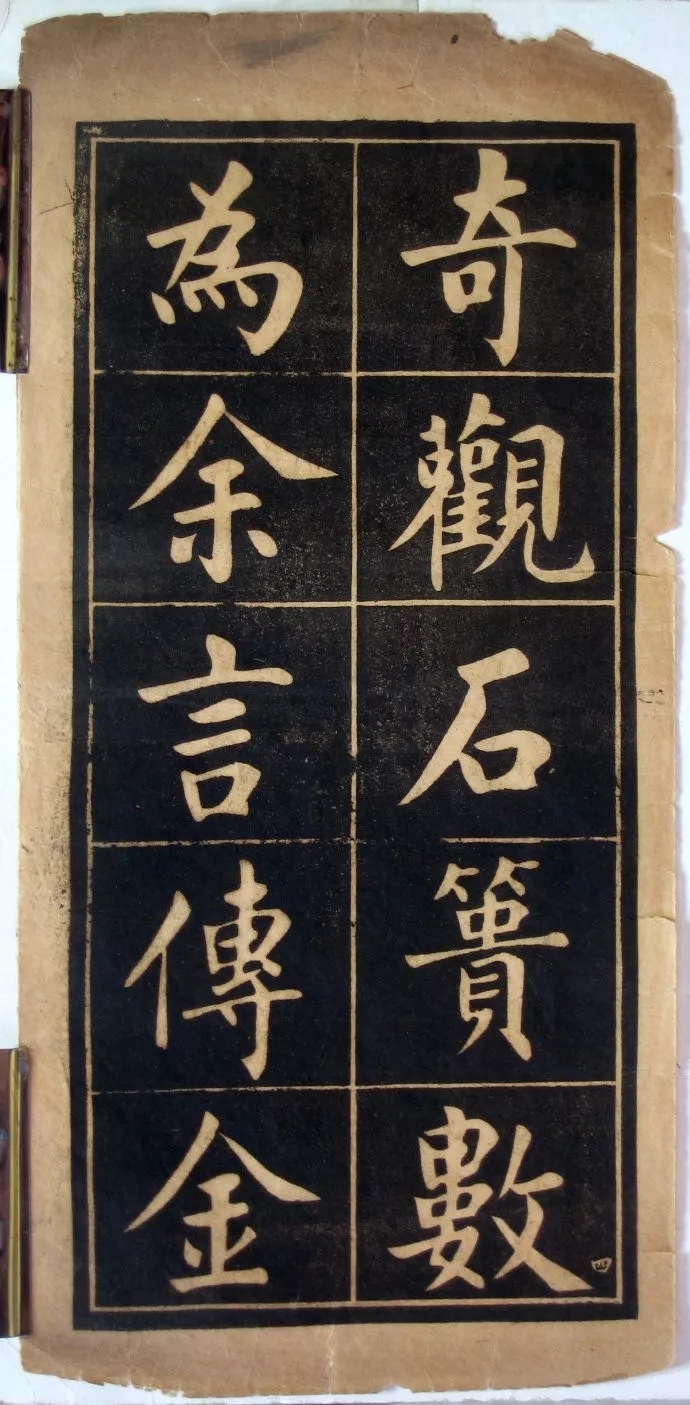 奇觀石簣數
四
為余言傳金